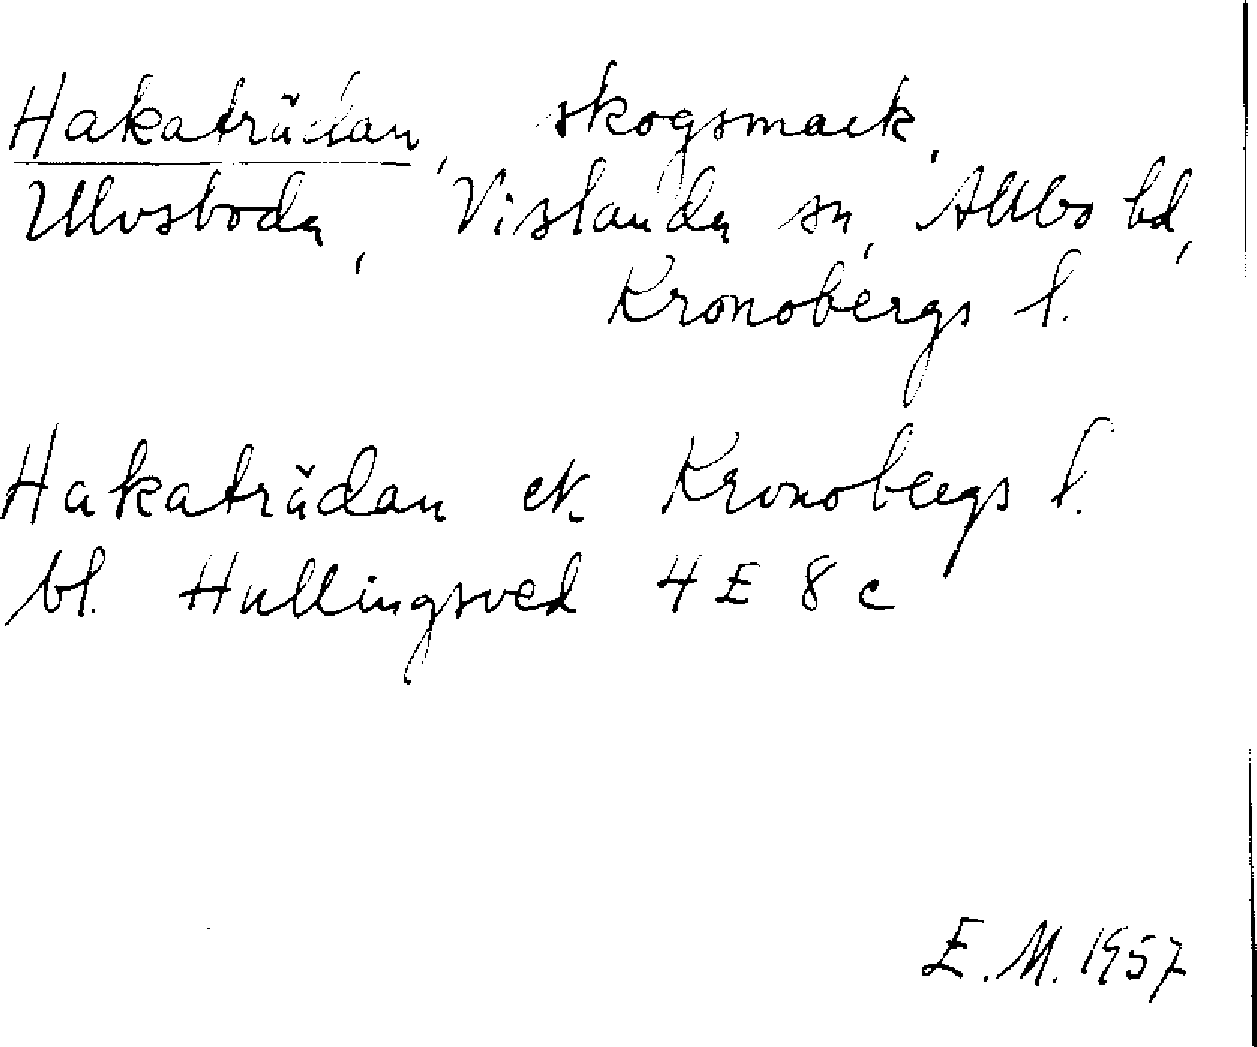 Hakaträdan, skogsmark,
Ulvsboda, Vislanda sn, Allbo hd,
Kronobergs l.
Hakaträdan ek. Kronobergs l.
bl. Hullingsved 4 E 8 c
E. M. 1957